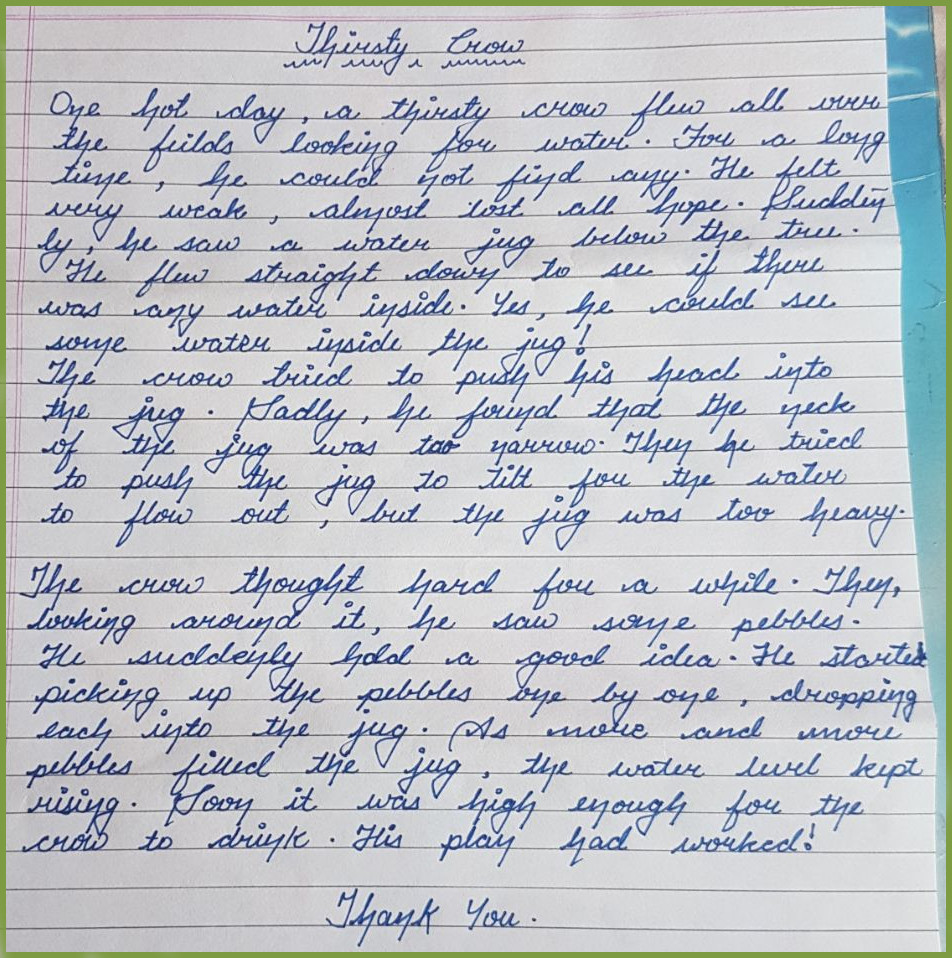 Thirsty Crow
One hot day, a thirsty crow flew all over
the fields looking for water. For a long
time, he could not find any. He felt
very weak, almost lost all hope. Sudden
ly, he saw a water jug below the tree.
He flew straight down to see if there
was any water inside. Yes, he could see
some water inside the jug!
The crow tried to push his head into
the jug. Sadly, he found that the neck
of the jug was too narrow. Then he tried
to push the jug to tilt for the water
to flow out, but the jug was too heavy.
The crow thought hard for a while. Then,
looking around it, he saw some pebbles.
He suddenly had a good idea. He started
picking up the pebbles one by one, dropping
each into the jug. As more and more
pebbles filled the jug, the water level kept
rising. Soon it was high enough for the
crow to drink. His plan had worked!
Thank You.